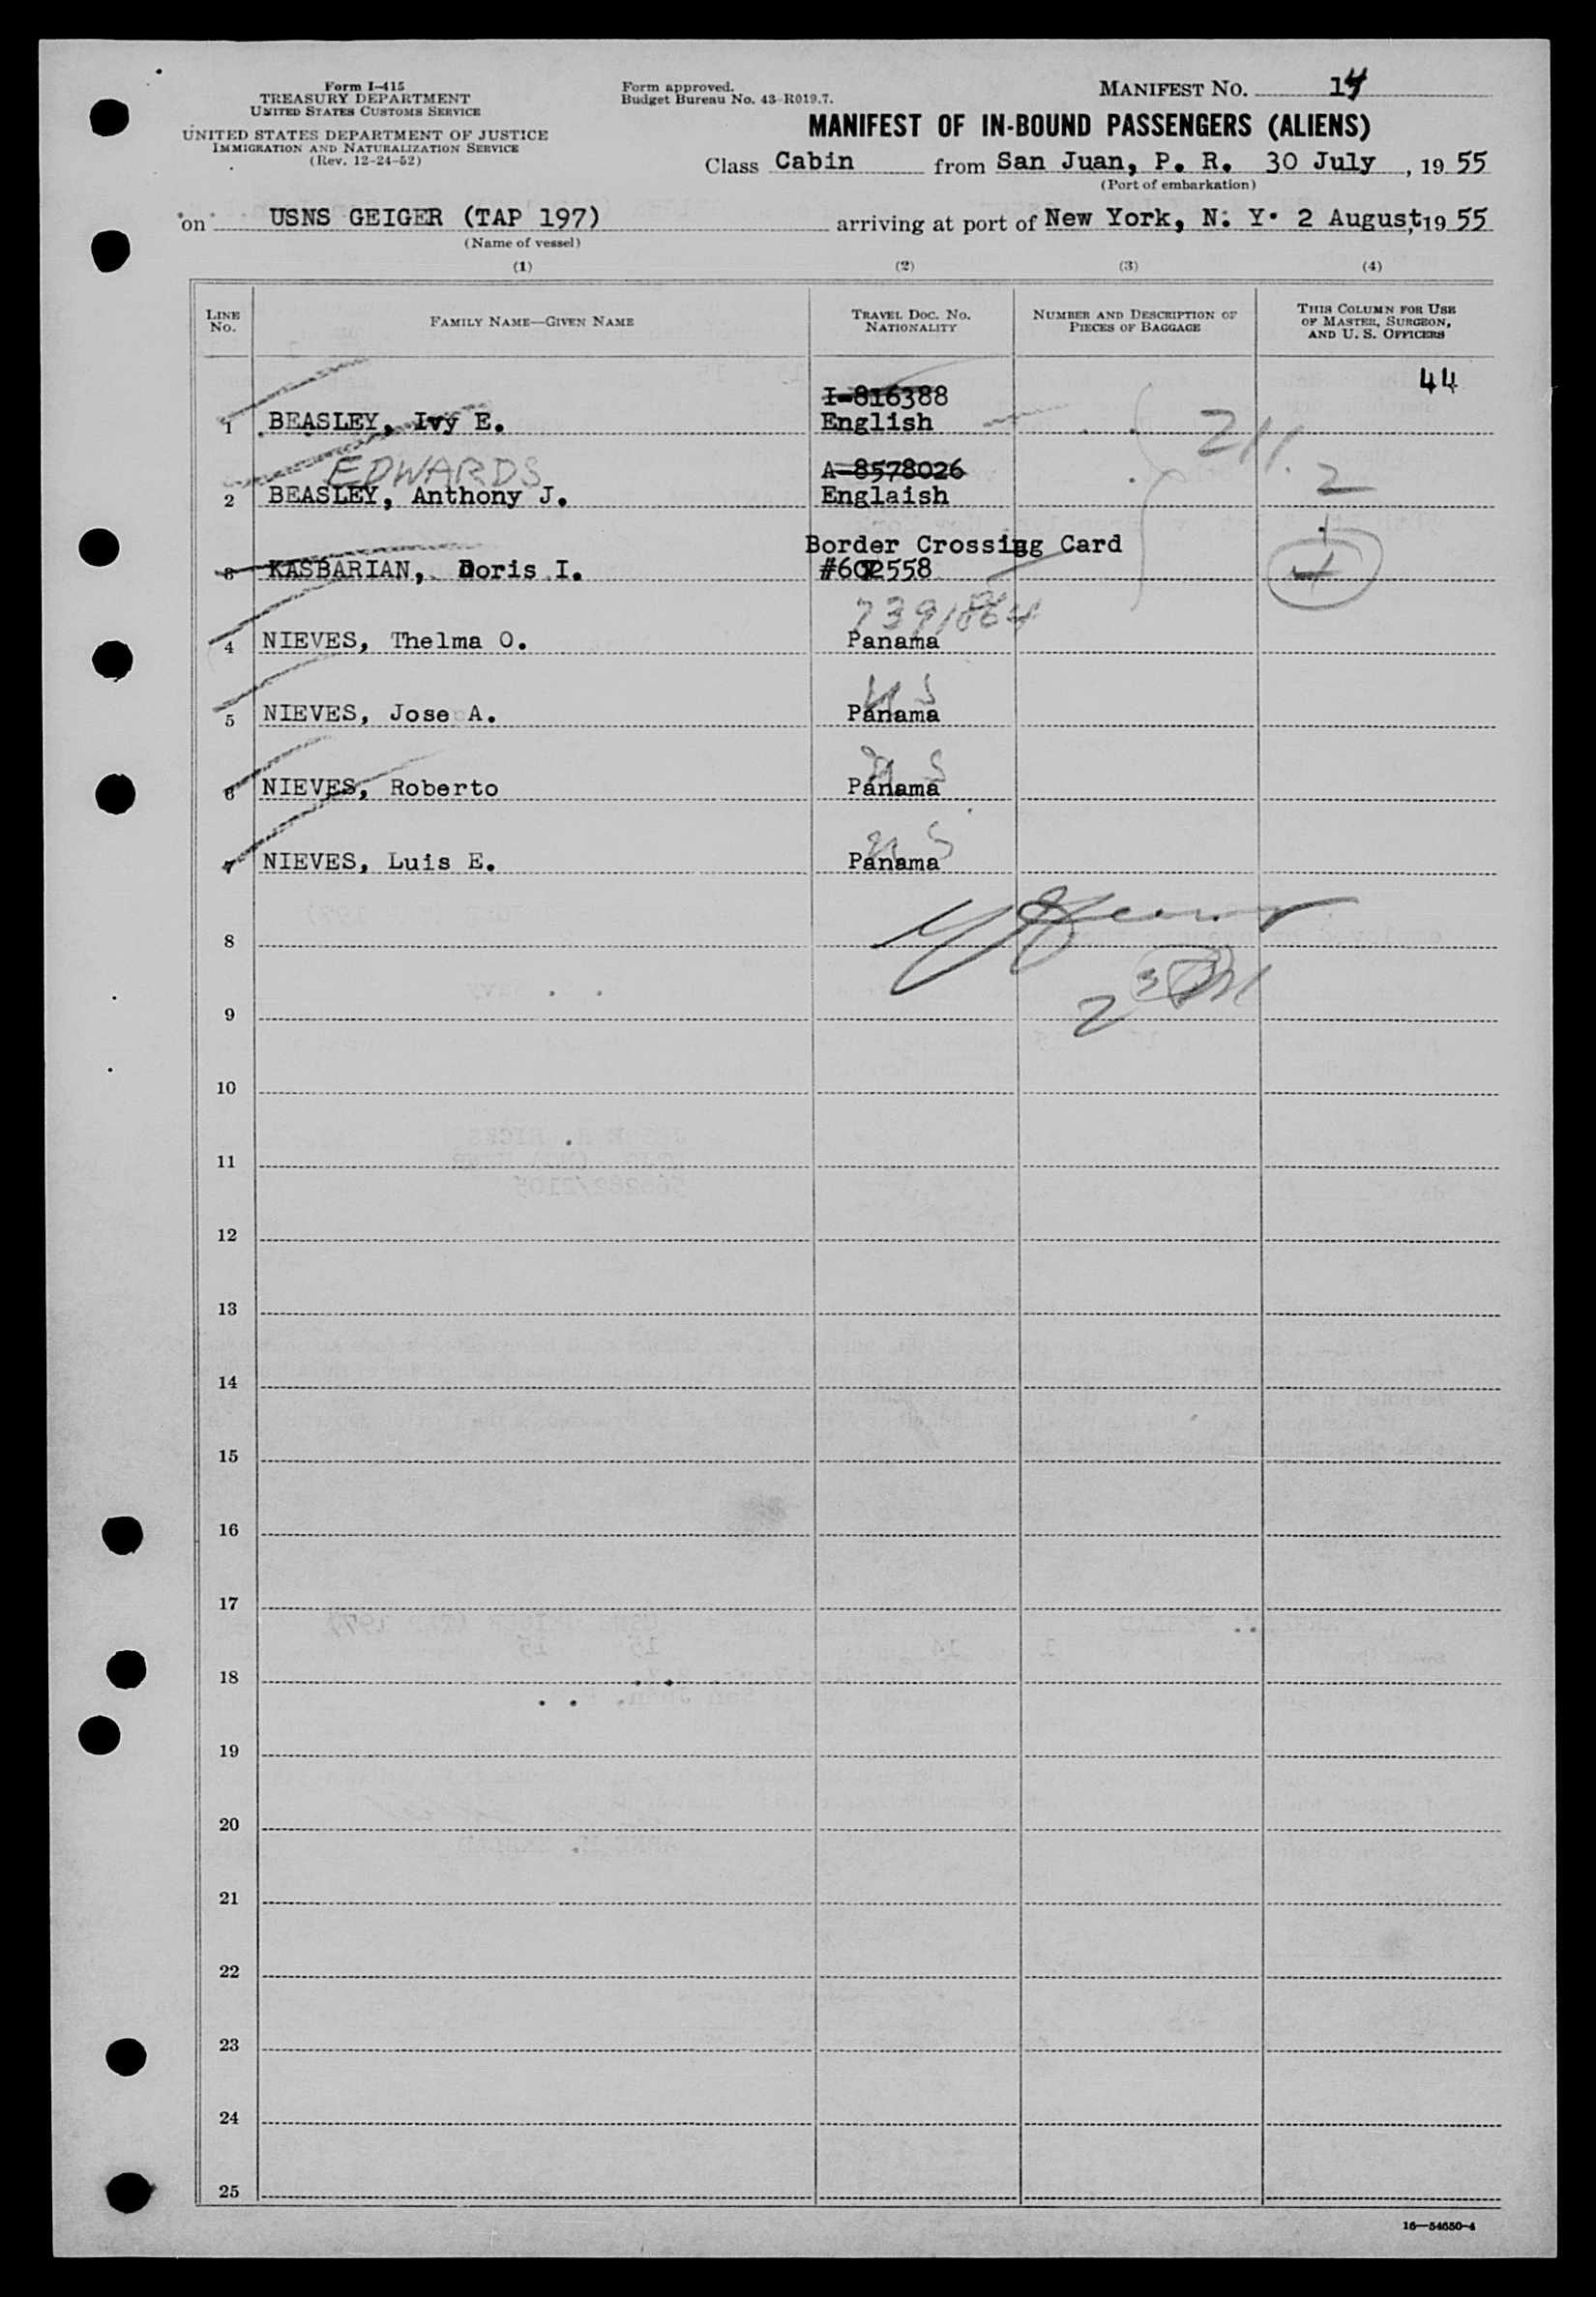 Form I-415
TREASURY DEPARTMENT
UNITED STATES CUSTOMS SERVICE
UNITED STATES DEPARTMENT OF JUSTICE
IMMIGRATION AND NATURALIZATION SERVICE
(Rev. 12-24-52)
Form approved.
Budget Bureau No. 43-R019.7.
MANIFEST NO. 14
MANIFEST OF IN-BOUND PASSENGERS (ALIENS)
Class Cabin from San Juan, P. R. 30 July, 19 55
(Port of embarkation)
on USNS GEIGER (TAP 197) arriving at port of New York, N. Y. 2 August, 19 55
(Name of vessel)
(1) (2) (3) (4)
LINE NO.
FAMILY NAME—GIVEN NAME
TRAVEL DOC. NO. NATIONALITY
NUMBER AND DESCRIPTION OF PIECES OF BAGGAGE
THIS COLUMN FOR USE OF MASTER, SURGEON, AND U. S. OFFICERS
44
I-816388
1 BEASLEY, Ivy E. English
211.
EDWARDS A-8578026
2 BEASLEY, Anthony J. Englaish
2
Border Crossing Card
3 KASBARIAN, Doris I. #602558
7391864
4 NIEVES, Thelma O. Panama
U S
5 NIEVES, Jose A. Panama
U S
6 NIEVES, Roberto Panama
U S
7 NIEVES, Luis E. Panama
8
9
10
11
12
13
14
15
16
17
18
19
20
21
22
23
24
25
16—54650-4